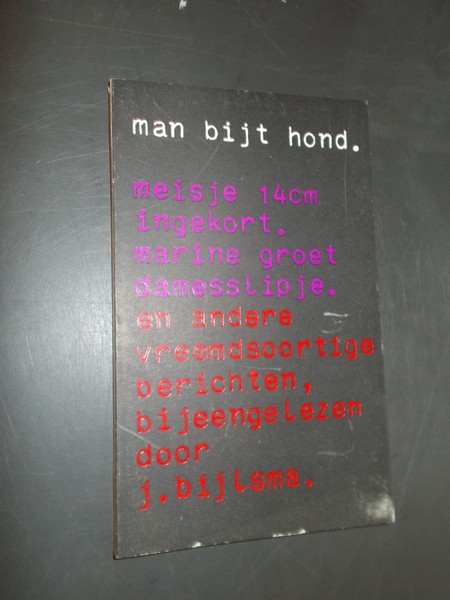 man bijt hond.
meisje 14cm
ingekort.
marine groet
damesslipje.
en andere
vreemdsoortige
berichten,
bijeengelezen
door
j.bijlsma.